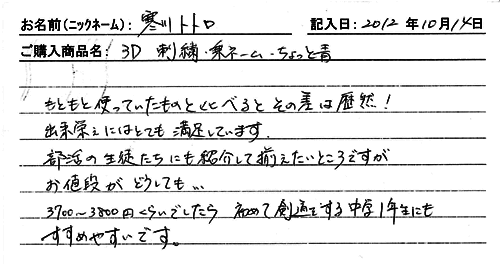 お名前(ニックネーム): 寒川トトロ 記入日: 2012 年 10月 14日
ご購入商品名: 3D 刺繍・垂ネーム・ちょっと青
もともと使っていたものとくらべると その差は歴然!
出来栄えにはとても満足しています.
部活の生徒たちにも紹介して揃えたいところですが
お値段が どうしても...
3700~3800円くらいでしたら 初めて剣道をする中学1年生にも
すすめやすいです。